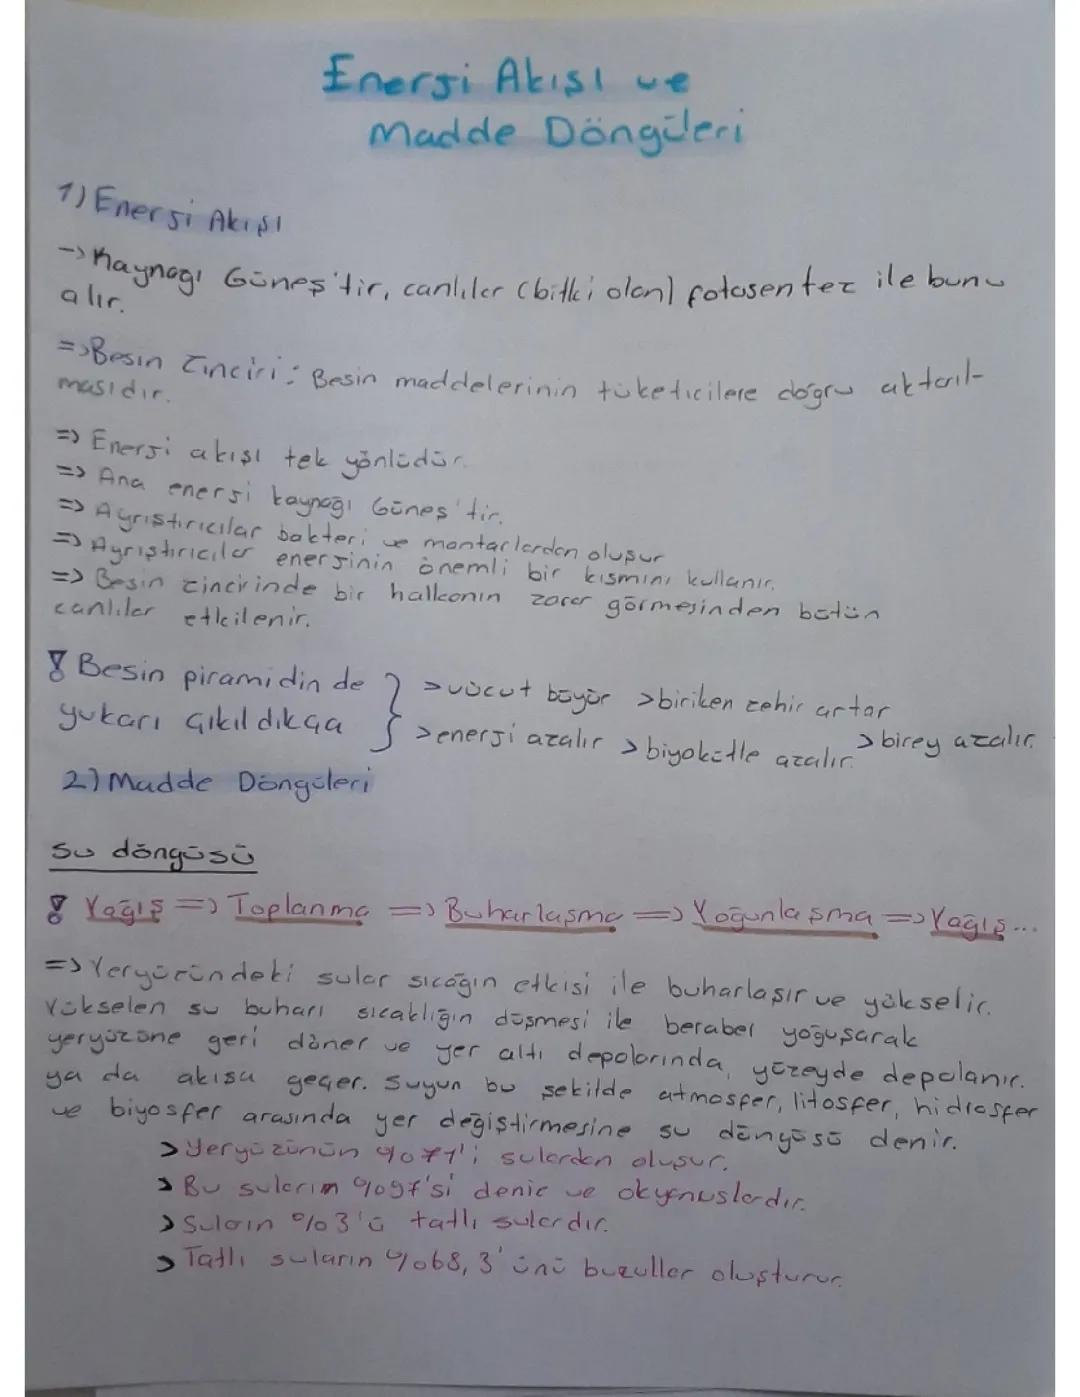 Enerji Akışı ve
Madde Döngüleri
1) Enerji Akışı
-> Kaynağı Güneş'tir, canlılar (bitki olan) fotosentez ile bunu
alır.
=> Besin Zinciri: Besin maddelerinin tüketicilere doğru aktarıl-
masıdır.
=> Enerji akışı tek yönlüdür.
=> Ana enerji kaynağı Güneş'tir.
=> Ayrıştırıcılar bakteri ve mantarlardan oluşur
=> Ayrıştırıcılar enerjinin önemli bir kısmını kullanır.
=> Besin zincirinde bir halkanın zarar görmesinden bütün
canlılar etkilenir.
! Besin piramidin de } >vücut büyür >biriken zehir artar
yukarı çıkıldıkça >enerji azalır >biyokütle azalır. >birey azalır.
2) Madde Döngüleri
Su döngüsü
! Yağış => Toplanma => Buharlaşma => Yoğunlaşma => Yağış...
=> Yeryüzündeki sular sıcağın etkisi ile buharlaşır ve yükselir.
Yükselen su buharı sıcaklığın düşmesi ile beraber yoğuşarak
yeryüzüne geri döner ve yer altı depolarında, yüzeyde depolanır.
ya da akışa geçer. Suyun bu şekilde atmosfer, litosfer, hidrosfer
ve biyosfer arasında yer değiştirmesine su döngüsü denir.
> Yeryüzünün %71'i sulardan oluşur.
> Bu suların %97'si deniz ve okyanuslardır.
> Suların %3'ü tatlı sulardır.
> Tatlı suların %68,3'ünü buzullar oluşturur.